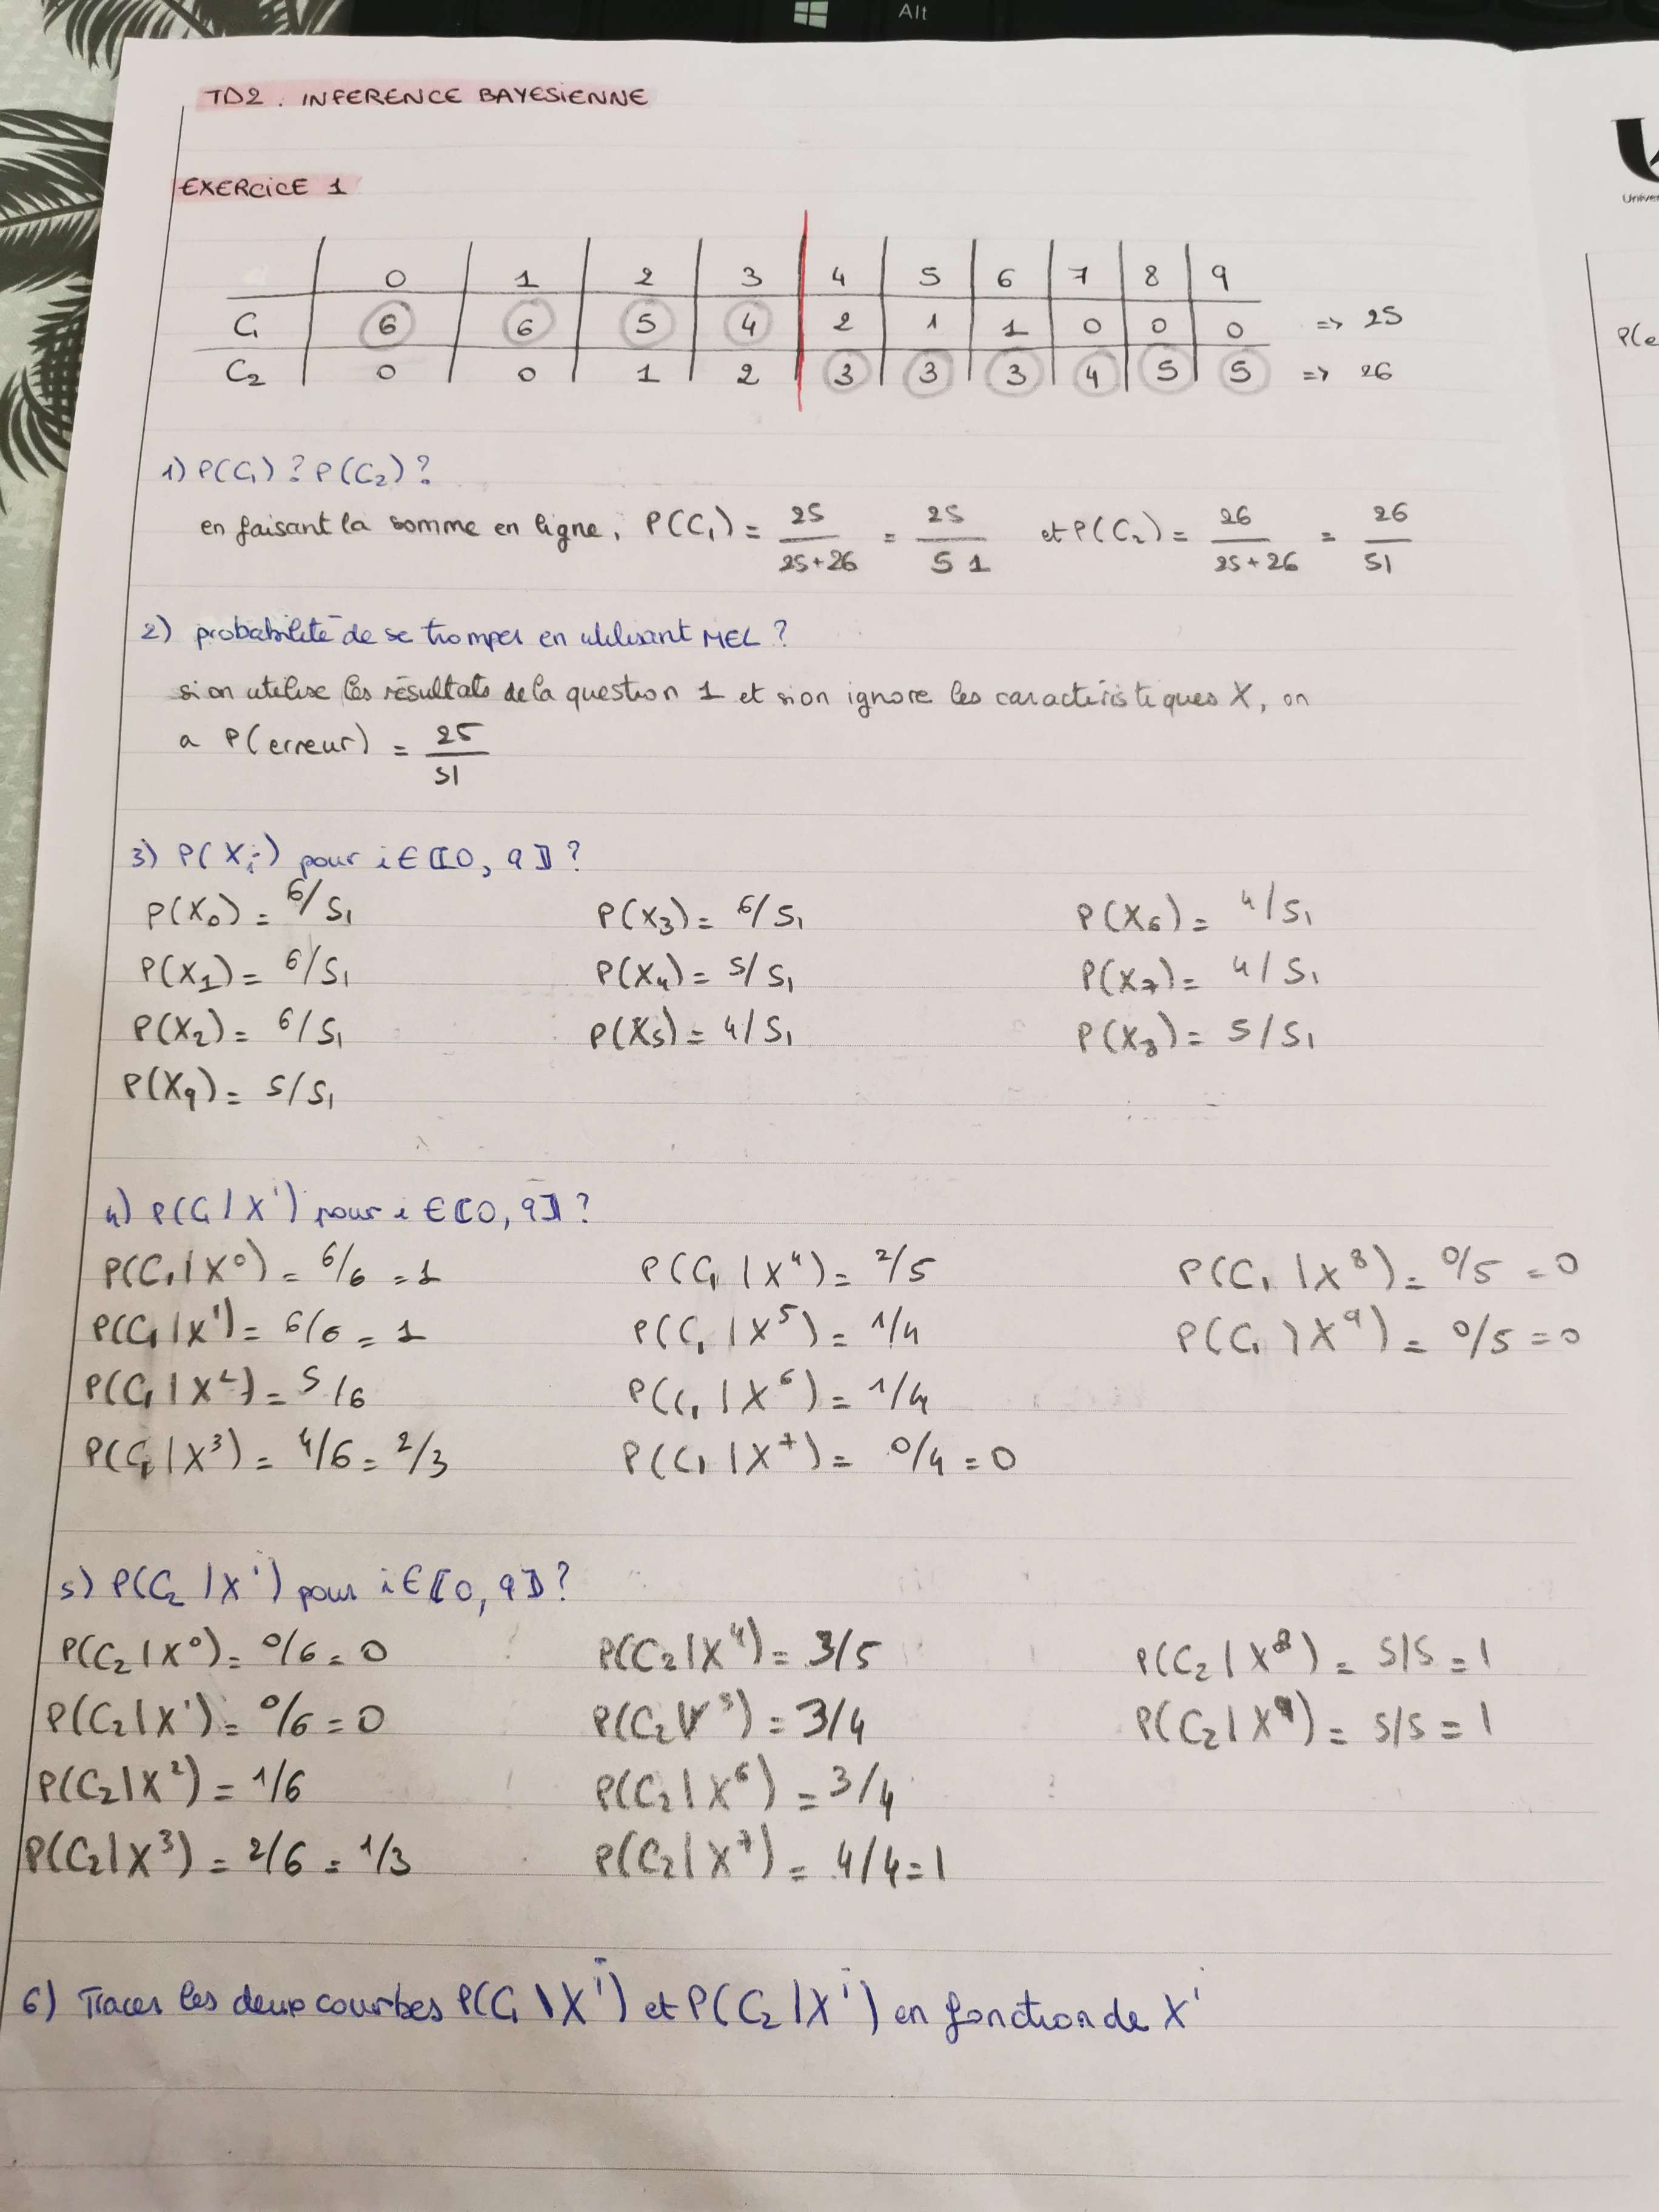 Alt
TD2 : INFERENCE BAYESIENNE
EXERCICE 1
0 1 2 3 4 5 6 7 8 9
C1 6 6 5 4 2 1 1 0 0 0 => 25
C2 0 0 1 2 3 3 3 4 5 5 => 26
1) P(C1) ? P(C2) ?
en faisant la somme en ligne, P(C1) = 25/(25+26) = 25/51 et P(C2) = 26/(25+26) = 26/51
2) probabilité de se tromper en utilisant MEL ?
si on utilise les résultats de la question 1 et si on ignore les caractéristiques X, on
a P(erreur) = 25/51
3) P(Xi) pour i ∈ ⟦0, 9⟧ ?
P(X0) = 6/51 P(X3) = 6/51 P(X6) = 4/51
P(X1) = 6/51 P(X4) = 5/51 P(X7) = 4/51
P(X2) = 6/51 P(X5) = 4/51 P(X8) = 5/51
P(X9) = 5/51
4) P(C1 | X^i) pour i ∈ ⟦0, 9⟧ ?
P(C1 | X^0) = 6/6 = 1 P(C1 | X^4) = 2/5 P(C1 | X^8) = 0/5 = 0
P(C1 | X^1) = 6/6 = 1 P(C1 | X^5) = 1/4 P(C1 | X^9) = 0/5 = 0
P(C1 | X^2) = 5/6 P(C1 | X^6) = 1/4
P(C1 | X^3) = 4/6 = 2/3 P(C1 | X^7) = 0/4 = 0
5) P(C2 | X^i) pour i ∈ ⟦0, 9⟧ ?
P(C2 | X^0) = 0/6 = 0 P(C2 | X^4) = 3/5 P(C2 | X^8) = 5/5 = 1
P(C2 | X^1) = 0/6 = 0 P(C2 | X^5) = 3/4 P(C2 | X^9) = 5/5 = 1
P(C2 | X^2) = 1/6 P(C2 | X^6) = 3/4
P(C2 | X^3) = 2/6 = 1/3 P(C2 | X^7) = 4/4 = 1
6) Tracer les deux courbes P(C1 | X^i) et P(C2 | X^i) en fonction de X^i
Univer
P(e